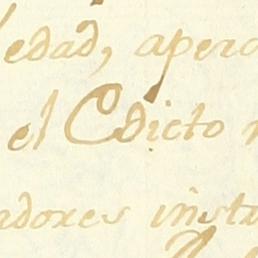 edad, aperc
el Edicto
adores insta